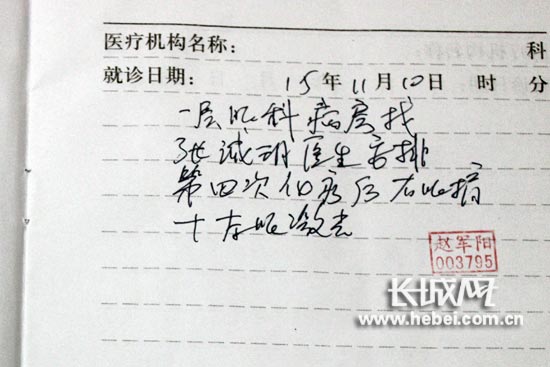 医疗机构名称: 科
就诊日期: 15年11月10日 时 分
一层眼科病房找
张诚玥医生安排
第四次化疗后右眼摘
十左眼激光
赵军阳
003795
长城网
www.hebei.com.cn